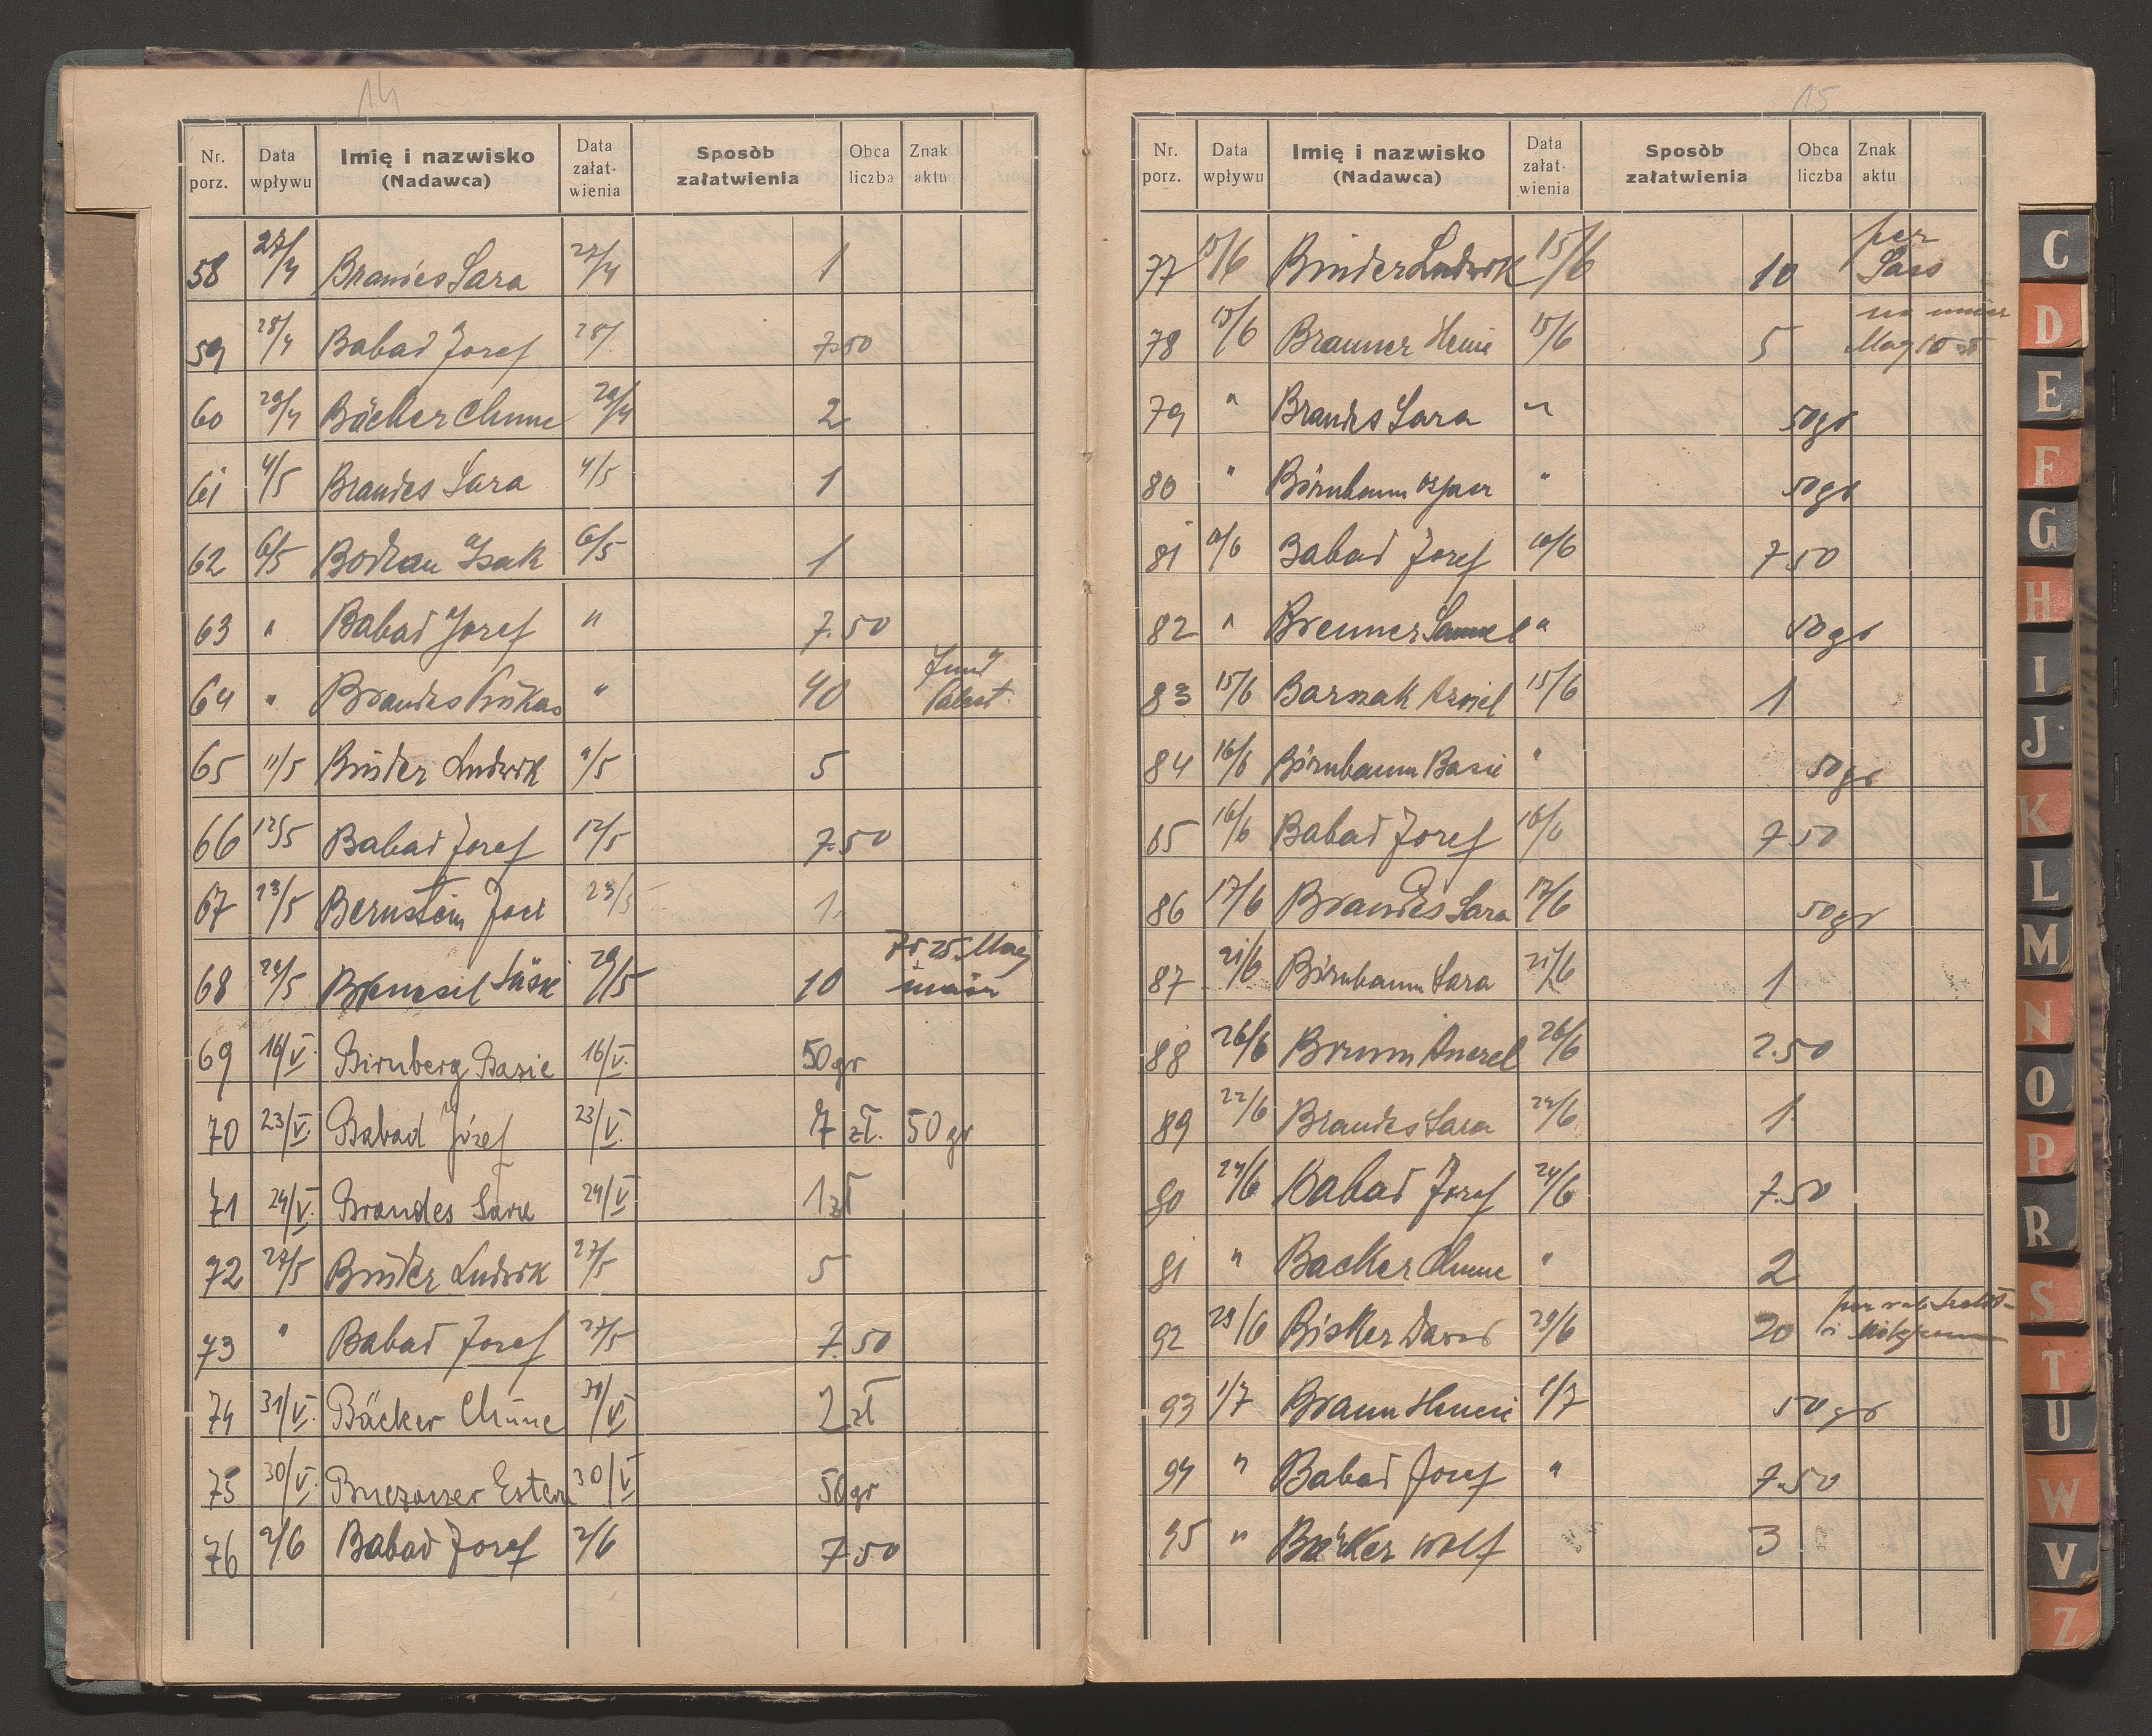 14
Nr. porz. Data wpływu Imię i nazwisko (Nadawca) Data załat-wienia Sposòb załatwienia Obca liczba Znak aktu
58 27/4 Brandes Sara 27/4 1
59 28/4 Babad Jozef 28/ 7.50
60 29/4 Bäcker Chune 29/4 2
61 4/5 Brandes Sara 4/5 1
62 6/5 Bodran Isak 6/5 1
63 " Babad Jozef " 7.50
64 " Brandes Pinkas " 40 fund Palest.
65 11/5 Binder Ludwik 11/5 5
66 12/5 Babad Jozef 12/5 7.50
67 23/5 Bernstein Joel 23/5 1
68 29/5 Süsse 29/5 10
69 16/V. Birnberg Basie 16/V. 50gr
70 23/V. Babad Józef 23/V. 7 zł. 50 gr
71 24/V. Brandes Sara 24/V 1 zł
72 27/5 Binder Ludwik 27/5 5
73 " Babad Jozef 27/5 7.50
74 31/V. Bäcker Chune 31/VI 2 zł
75 30/V. Estera 30/V 50gr
76 2/6 Babad Jozef 2/6 7.50
15
Nr. porz. Data wpływu Imię i nazwisko (Nadawca) Data załat-wienia Sposòb załatwienia Obca liczba Znak aktu
77 15/6 Binder Ludwik 15/6 10 per Sass
78 15/6 Brauner Henie 15/6 5
79 " Brandes Sara " 50gr
80 " Birnbaum " 50gr
81 10/6 Babad Jozef 10/6 7.50
82 " Brenner Samuel " 50gr
83 15/6 Barszak Asriel 15/6 1
84 16/6 Birnbaum Basie " 50gr
85 16/6 Babad Jozef 16/6 7.50
86 17/6 Brandes Sara 17/6 50gr
87 21/6 Birnbaum Sara 21/6 1
88 26/6 Brumm 26/6 2.50
89 22/6 Brandes Sara 22/6 1
90 24/6 Babad Jozef 24/6 7.50
91 " Backer Chune " 2
92 29/6 Bisker Dawid 29/6 20
93 1/7 Braun Henie 1/7 50gr
94 " Babad Jozef " 7.50
95 " Bäcker Wolf 3
C
D
E
F
G
H
I
J
K
L
M
N
O
P
R
S
T
U
W
V
Z